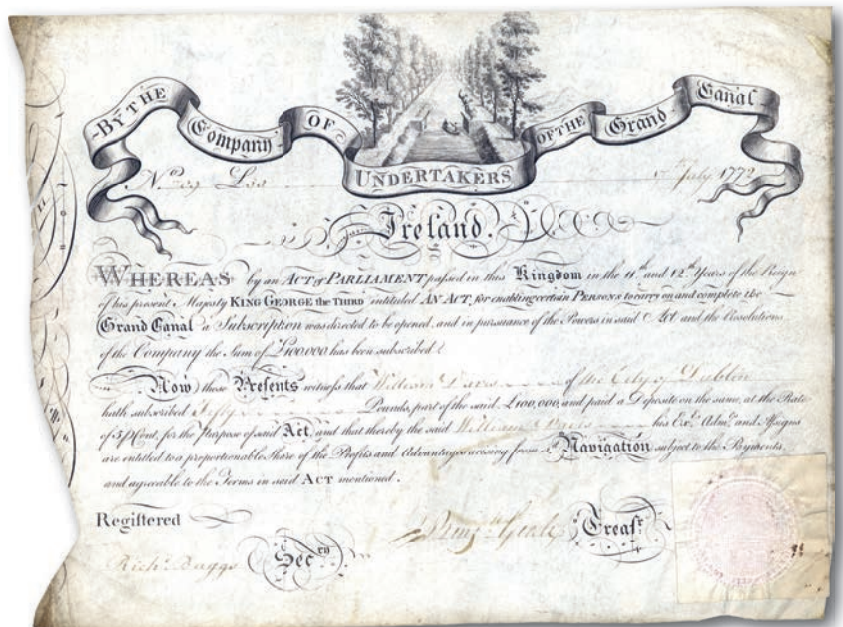 BY THE Company OF UNDERTAKERS OF THE Grand Canal
July 1772
Ireland.
WHEREAS by an ACT of PARLIAMENT passed in this Kingdom in the 11th and 12th Years of the Reign
of his present Majesty KING GEORGE the THIRD intituled AN ACT, for enabling certain PERSONS to carry on and complete the
Grand Canal a Subscription was directed to be opened, and in pursuance of the Powers in said Act and the Resolutions
of the Company the Sum of £100,000 has been subscribed
Now these Presents witness that William of the City of Dublin
hath subscribed Fifty Pounds, part of the said £100,000, and paid a Deposite on the same, at the Rate
of 5 P Cent, for the Purpose of said Act, and that thereby the said William his Exrs Admrs and Assigns
are entitled to a proportionable Share of the Profits and Advantages arising from sd Navigation subject to the Payments,
and agreeable to the Terms in said ACT mentioned.
Registered
Treasr
Richd Baggs Secry